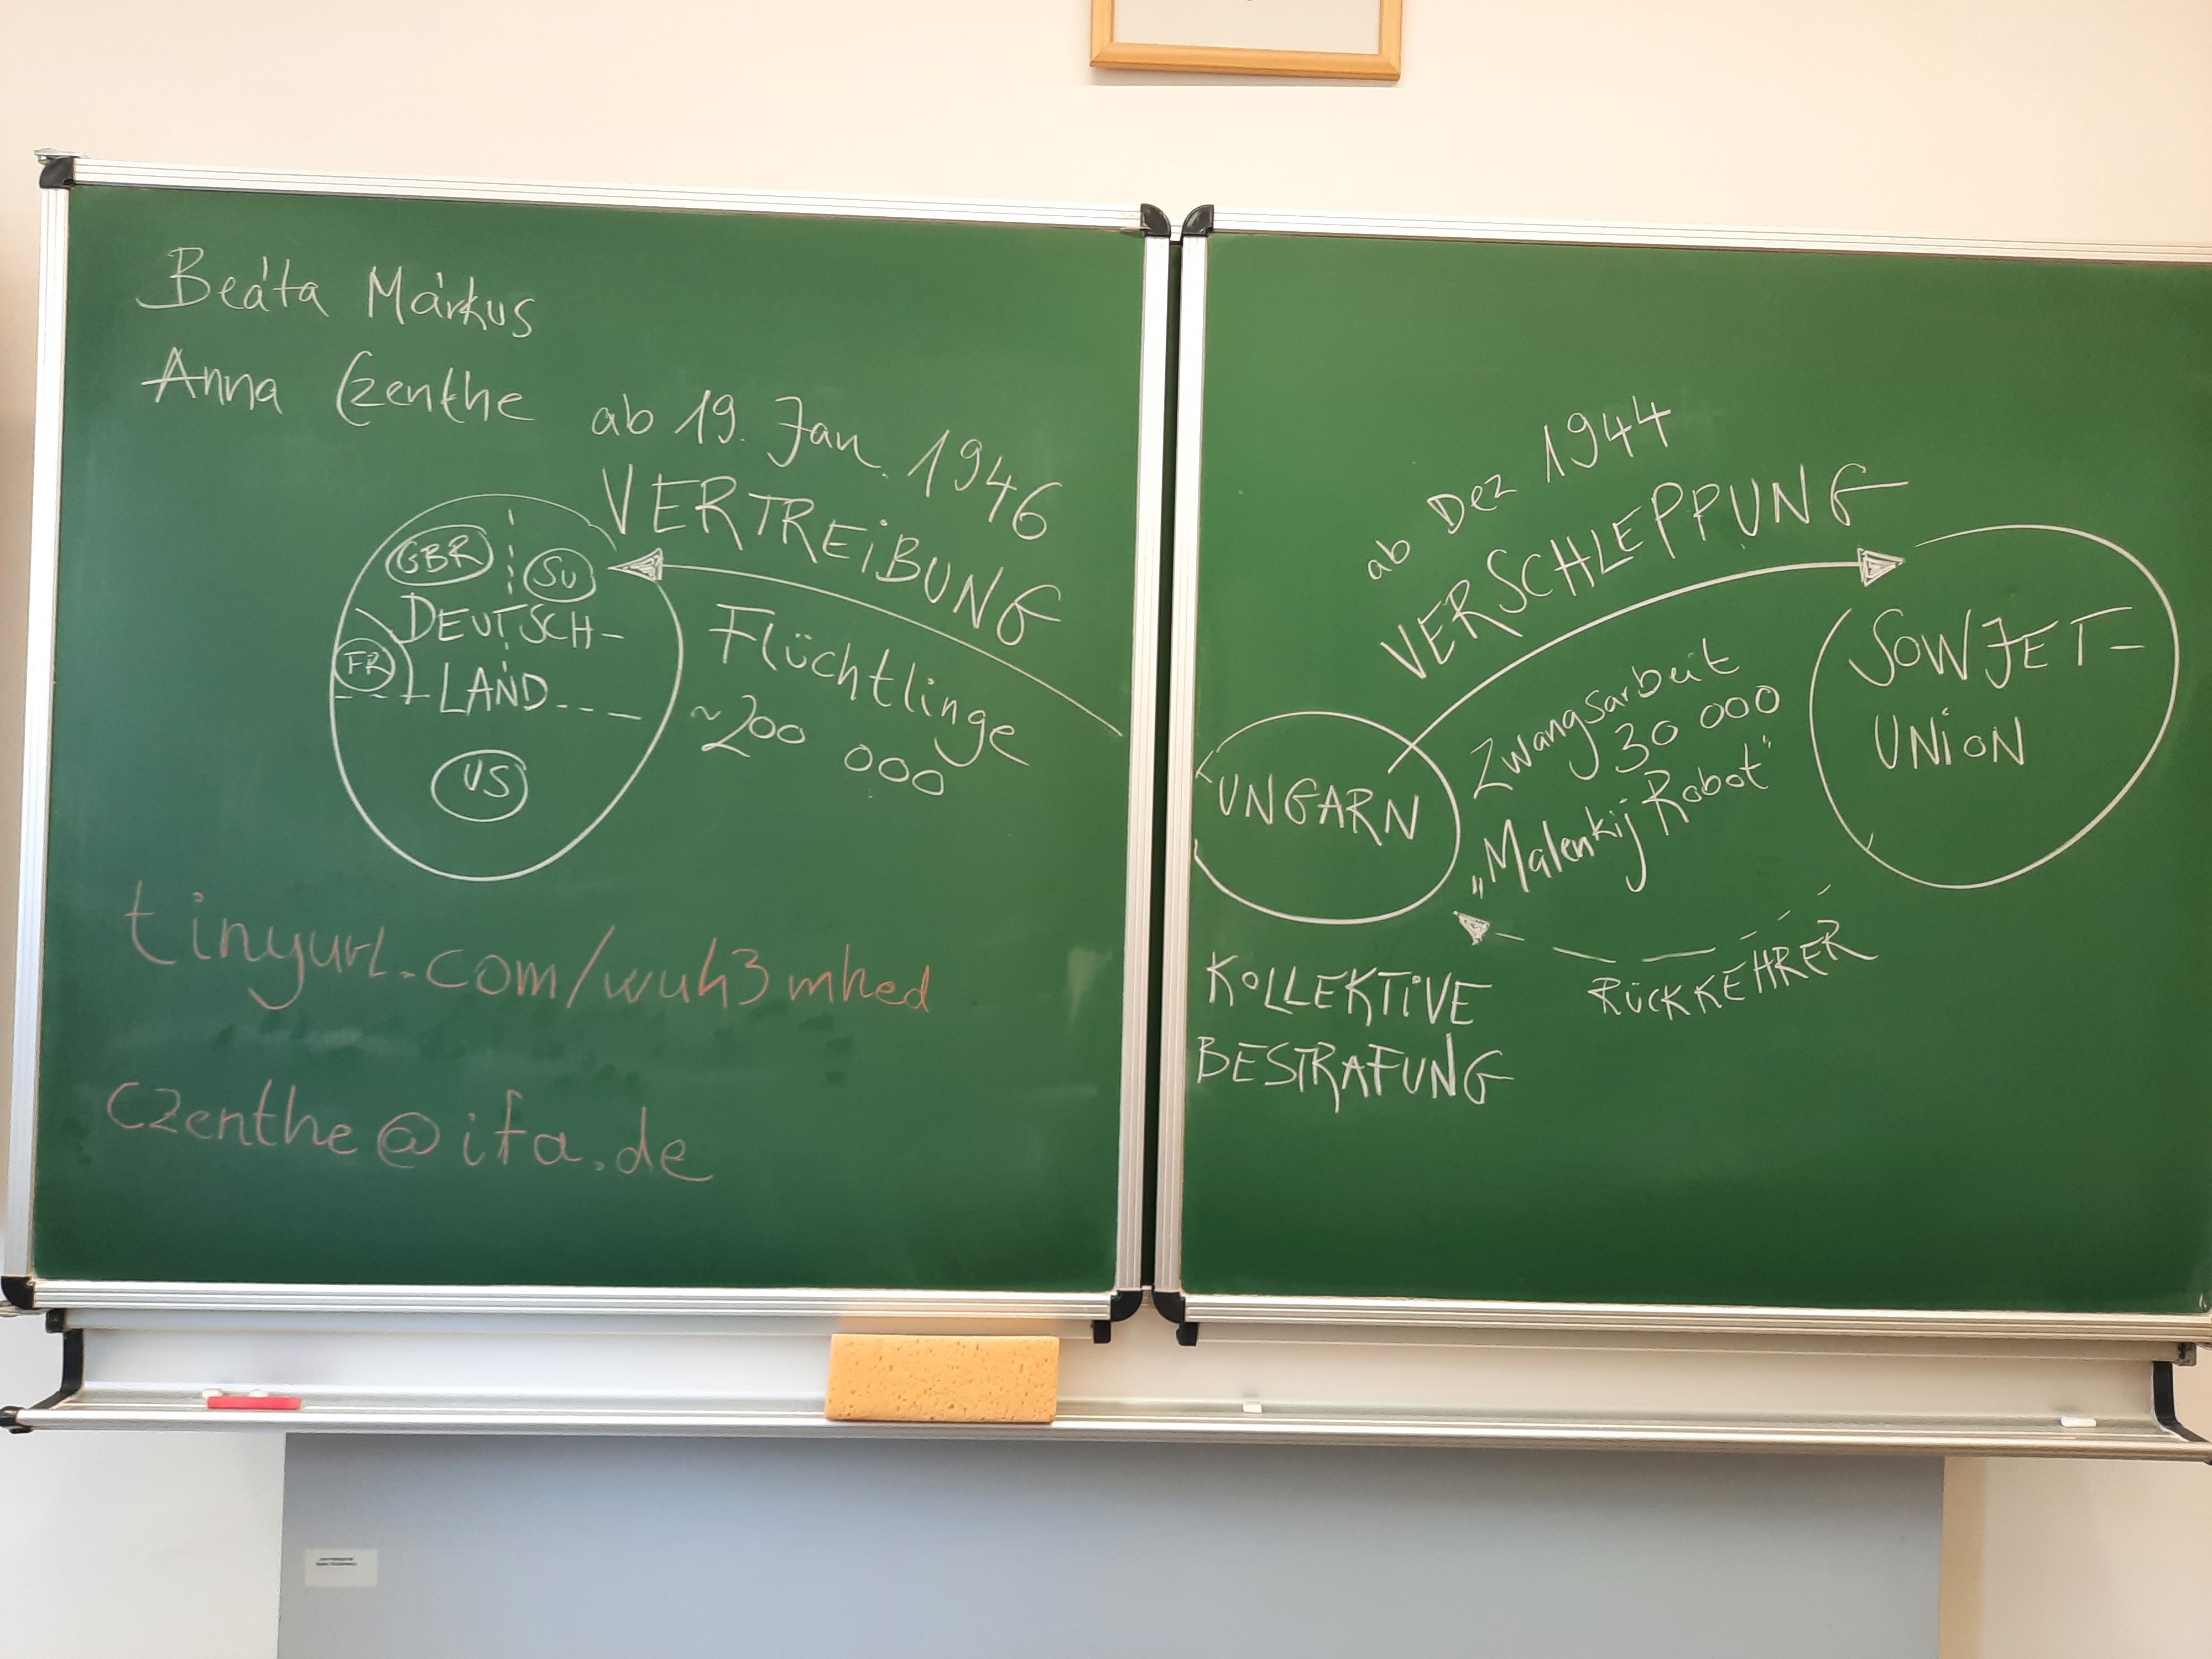 Beáta Márkus
Anna Czenthe
ab 19. Jan. 1946
VERTREIBUNG
GBR
SU
DEUTSCH-
FR
LAND
US
Flüchtlinge
~200 000
tinyurl.com/wuh3mhed
czenthe@ifa.de
ab Dez 1944
VERSCHLEPPUNG
SOWJET-
UNION
UNGARN
Zwangsarbeit
30 000
„Malenkij Robot"
RÜCKKEHRER
KOLLEKTIVE
BESTRAFUNG